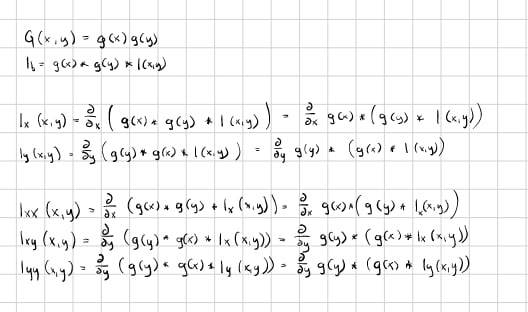 G(x,y) = g(x) g(y)
I_b = g(x) * g(y) * I(x,y)
I_x (x,y) = ∂/∂x ( g(x) * g(y) * I (x,y) ) = ∂/∂x g(x) * ( g(y) * I (x,y) )
I_y (x,y) = ∂/∂y ( g(y) * g(x) * I (x,y) ) = ∂/∂y g(y) * ( g(x) * I (x,y) )
I_xx (x,y) = ∂/∂x ( g(x) * g(y) * I_x (x,y) ) = ∂/∂x g(x) * ( g(y) * I_x (x,y) )
I_xy (x,y) = ∂/∂y ( g(y) * g(x) * I_x (x,y) ) = ∂/∂y g(y) * ( g(x) * I_x (x,y) )
I_yy (x,y) = ∂/∂y ( g(y) * g(x) * I_y (x,y) ) = ∂/∂y g(y) * ( g(x) * I_y (x,y) )